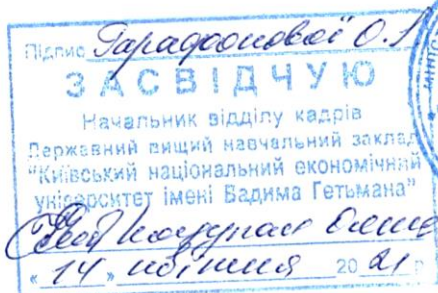 Підпис Гарафонової О.І.
ЗАСВІДЧУЮ
Начальник відділу кадрів
Державний вищий навчальний заклад
"Київський національний економічний
університет імені Вадима Гетьмана"
"14" квітня 2021 р